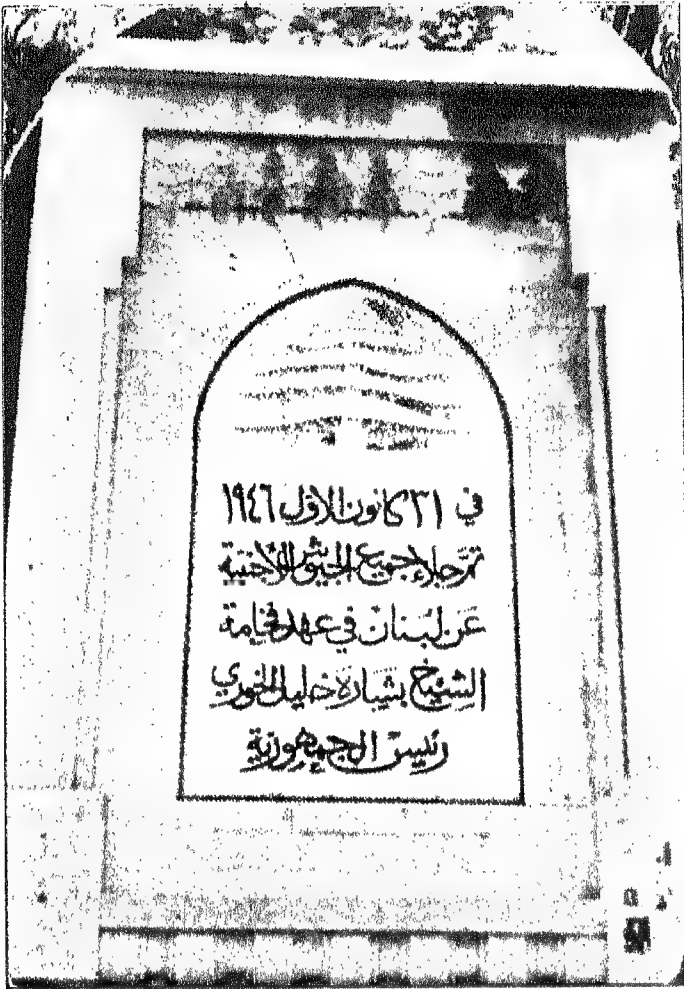 في ٣١ كانون الاول ١٩٤٦
تمّ جلاء جميع الجيوش الأجنبية
عن لبنان في عهد فخامة
الشيخ بشارة خليل الخوري
رئيس الجمهورية